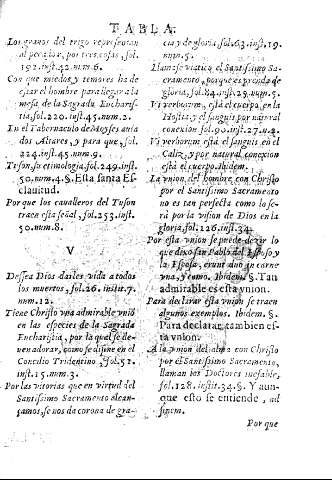 TABLA.
Los granos del trigo representan
al pecador, por tres cosas, fol.
192. inst. 42. num. 6.
Con que miedos, y temores ha de
estar el hombre para llegar a la
mesa, de la Sagrada Eucharis-
tia, fol. 220. inst. 45. num. 2.
En el Tabernaculo de Moyses avia
dos Altares, y para que, fol.
224. inst. 45. num. 9.
Tuson, su etimologia, fol. 249. inst.
50. num. 4. §. Esta santa Es-
clauitud.
Por que los caualleros del Tuson
traen esta señal, fol. 253. inst.
50. num. 8.
V
Dessea Dios darles vida a todos
los muertos, fol. 26. inst. 7.
num. 12.
Tiene Christo vna admirable vniõ
en las especies de la Sagrada
Eucharistia, por la qual se de-
uen adorar, como se difine en el
Concilio Tridentino, fol. 52.
inst. 15. num. 3.
Por las vitorias que en virtud del
Santissimo Sacramento alcan-
çamos, se nos da corona de gra-
cia y de gloria, fol. 63. inst. 19.
num. 5.
Llamase viatico el Santissimo Sa-
cramento, porque es prenda de
gloria, fol. 84. inst. 25. num. 5.
Vi verborum, està el cuerpo en la
Hostia, y el sanguis por natural
conexion fol. 90. inst. 27. n. 4.
Vi verborum està el sanguis en el
Caliz, y por natural conexion
està el cuerpo. Ibidem.
La vnion del hombre con Christo
por el Santissimo Sacramento
no es tan perfecta como lo se-
rà por la vision de Dios en la
gloria, fol. 126. inst. 34.
Por esta vnion se puede dezir lo
que dixo san Pablo del Esposo y
la Esposa, erunt duo in carne
vna, y como. Ibidem. §. Tan
admirable es esta vnion.
Para declarar esta vnion se traen
algunos exemplos. Ibidem. §.
Para declarar tambien es-
ta vnion.
A la vnion del alma con Christo
por el Santissimo Sacramento,
llaman los Doctores inefable,
fol. 128. instit. 34. §. Y aun-
que esto se entiende, ad
finem.
Por que